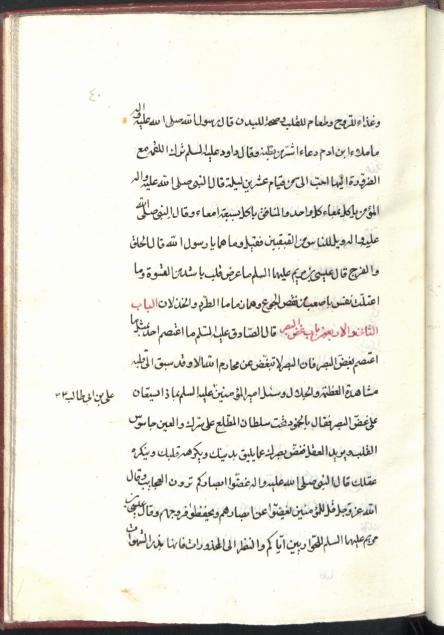 ٤٠
وغذاء للروح وطعام للقلب وصحة للبدن قال رسول الله صلى الله عليه واله
ما ملاء ابن ادم دعاء اشر من بطنه وقال داود عليه السلم ترك اللقمة مع
الضرورة اليها احب الى من قيام عشرين ليلة قال النبى صلى الله عليه واله
المؤمن ياكل بمعاء واحد والمنافق ياكل بسبعة امعاء وقال النبى صلى الله
عليه واله ويل للناس من القبقبين فقيل وما هما يا رسول الله قال الحلق
والفرج قال عيسى بن مريم عليهما السلم ما مرض قلب باشد من القسوة وما
اعتلت نفس باصعب من نقص الجوع وهما زماما الطرد والخذلان الباب
الثانى والاربعون باب غض البصر قال الصادق عليه السلم ما اغتصم احد بمثل ما
اعتصم بغض البصر فان البصر لا تبغض عن محارم الله الا وقد سبق الى قلبه
مشاهدة العظمة والجلال وسئل امير المؤمنين عليه السلم بماذا يستعان
على بن ابى طالب
على غض البصر فقال بالخمود تحت سلطان المطلع على سترك والعين جاسوس
القلب وبريد العقل فغض بصرك عما يليق بدينك ويكرهه قلبك وينكره
عقلك قال النبى صلى الله عليه واله غضوا ابصاركم ترون العجايب وقال
الله عز وجل قل للمؤمنين يغضوا من ابصارهم ويحفظوا فروجهم وقال عيسى بن
مريم عليهما السلم للحواريين اياكم والنظر الى المحذورات فانها بذر الشهوات